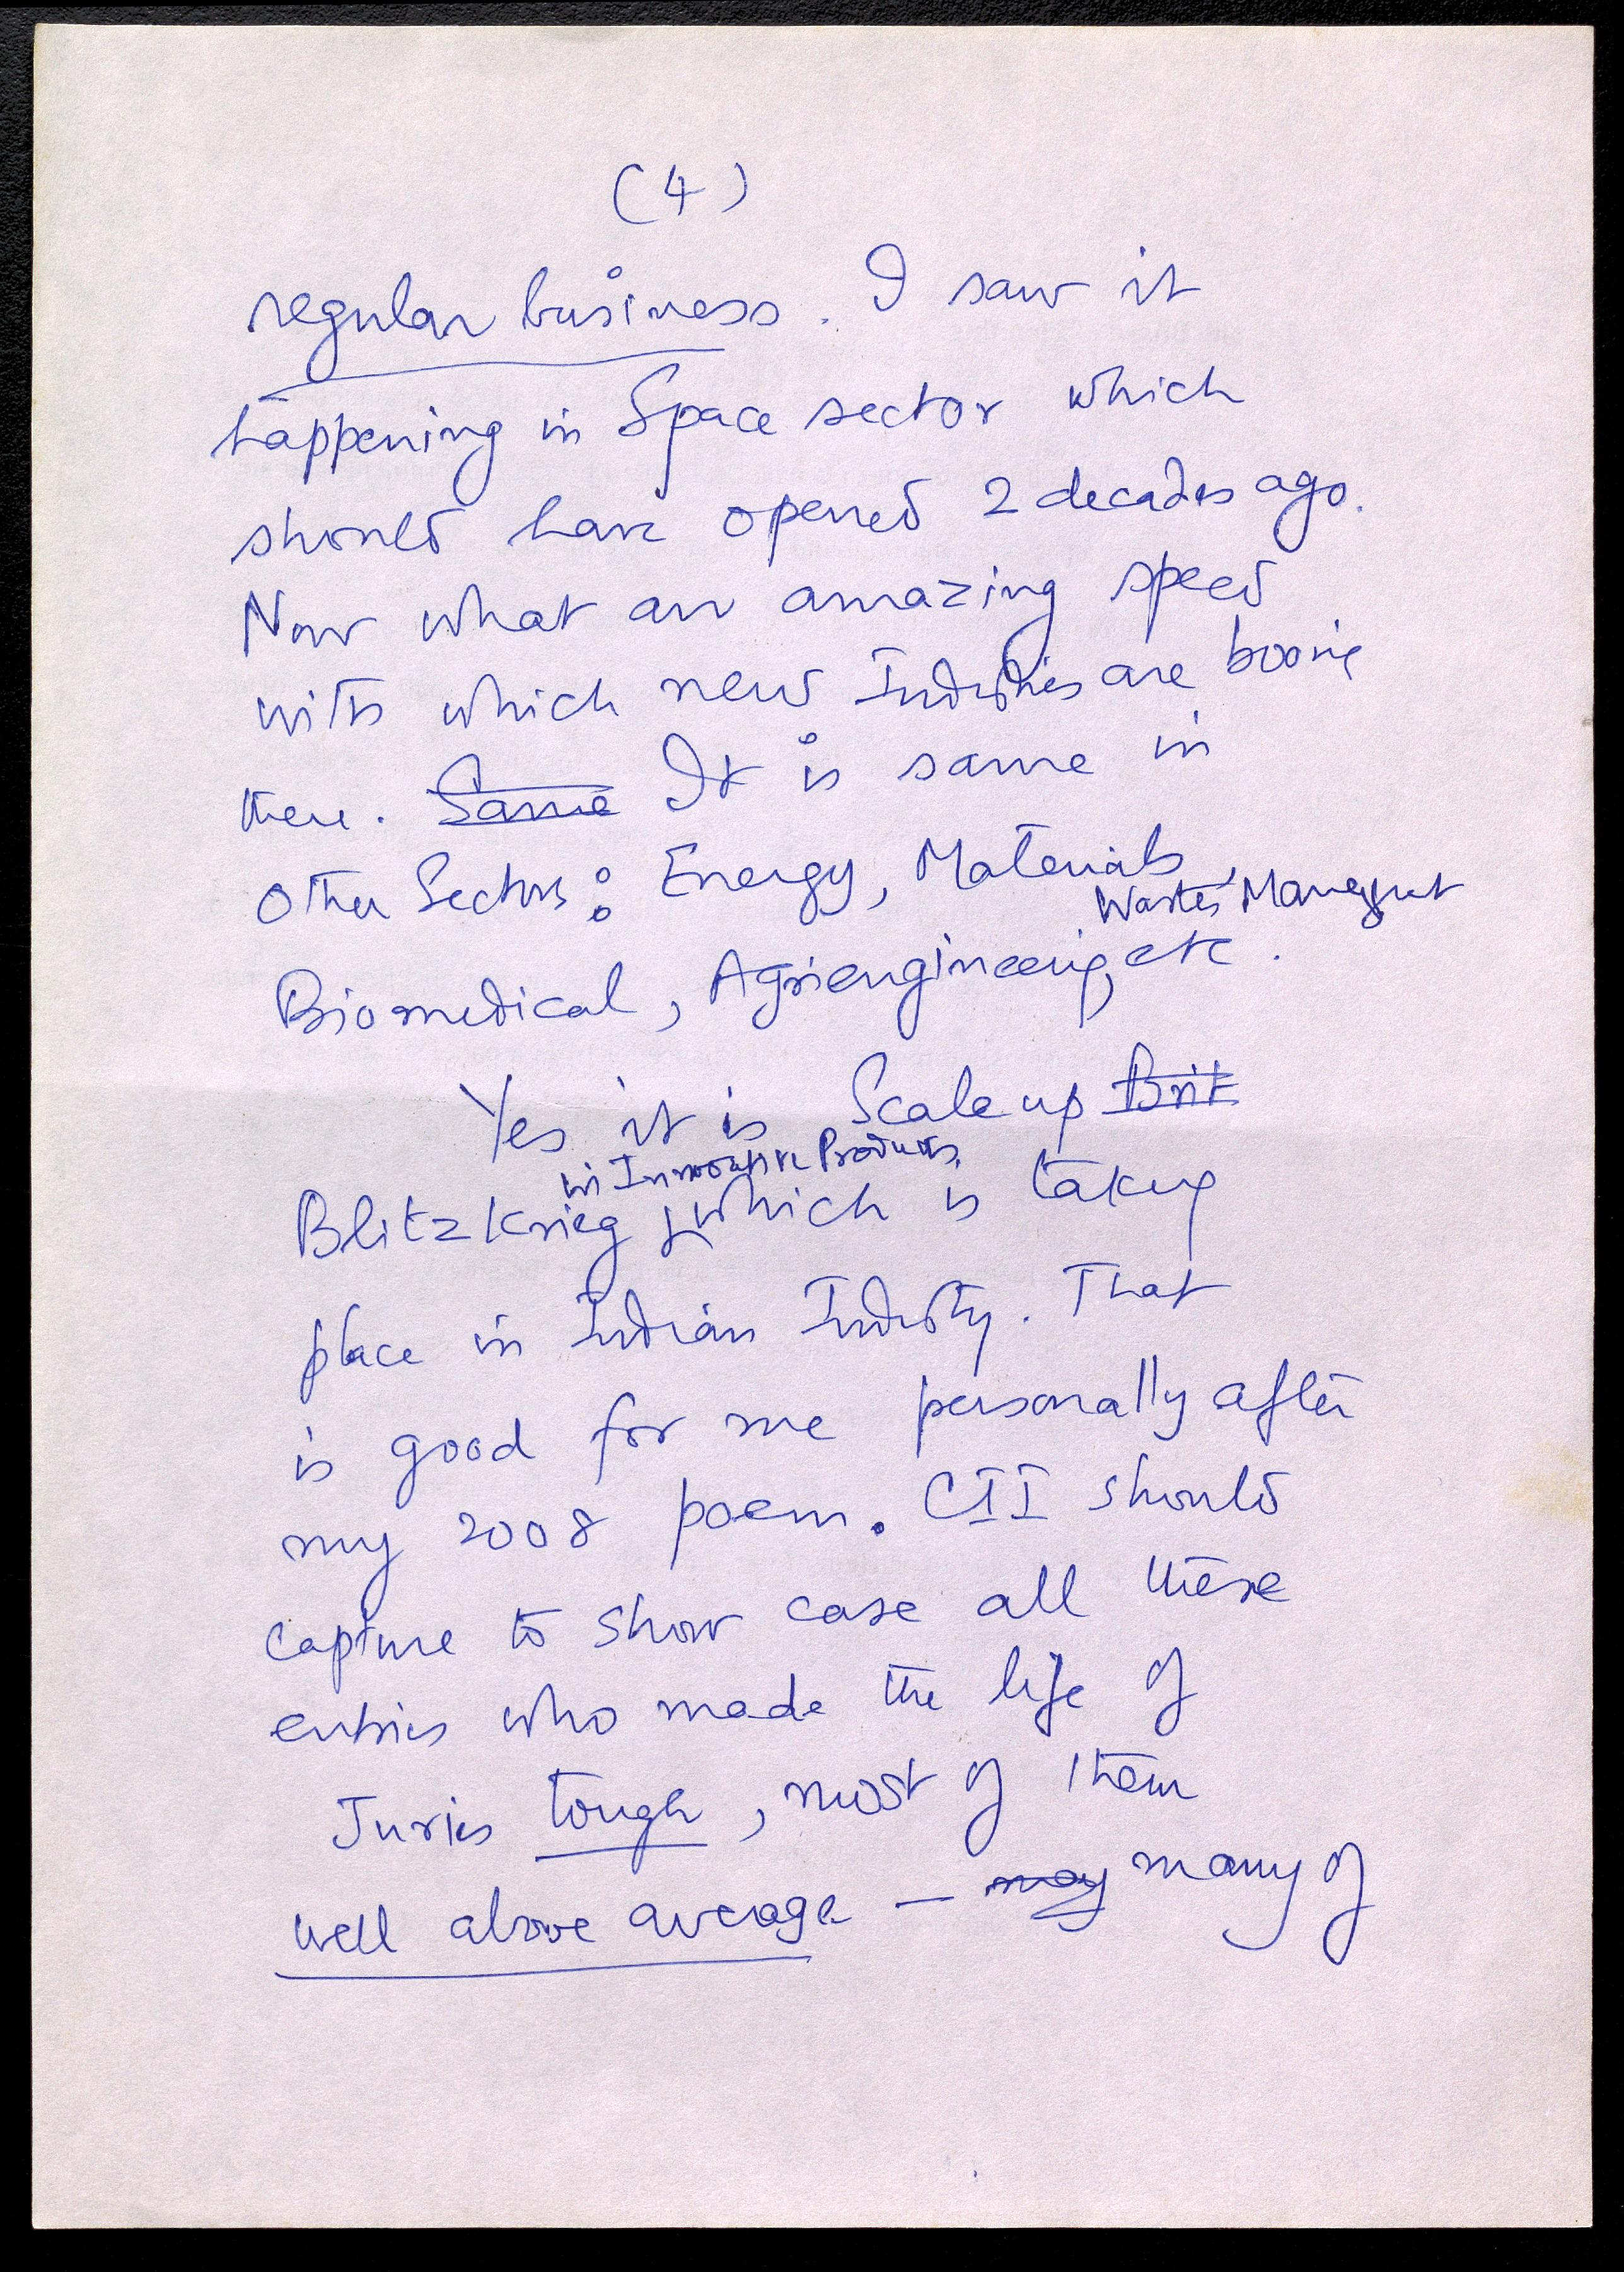 (4)
regular business. I saw it
happening in Space sector which
should have opened 2 decades ago.
Now what an amazing speed
with which new Industries are
there. Same It is same in
other Sectors: Energy, Materials,
Wastes Management
Biomedical, Agriengineering, etc.
Yes it is Scale up Brit
in Innovative Products,
Blitzkrieg which is taking
place in Indian Industry. That
is good for me personally after
my 2008 poem. CII should
capture to show case all these
entries who made the life of
Juries tough, most of them
well above average — may many of